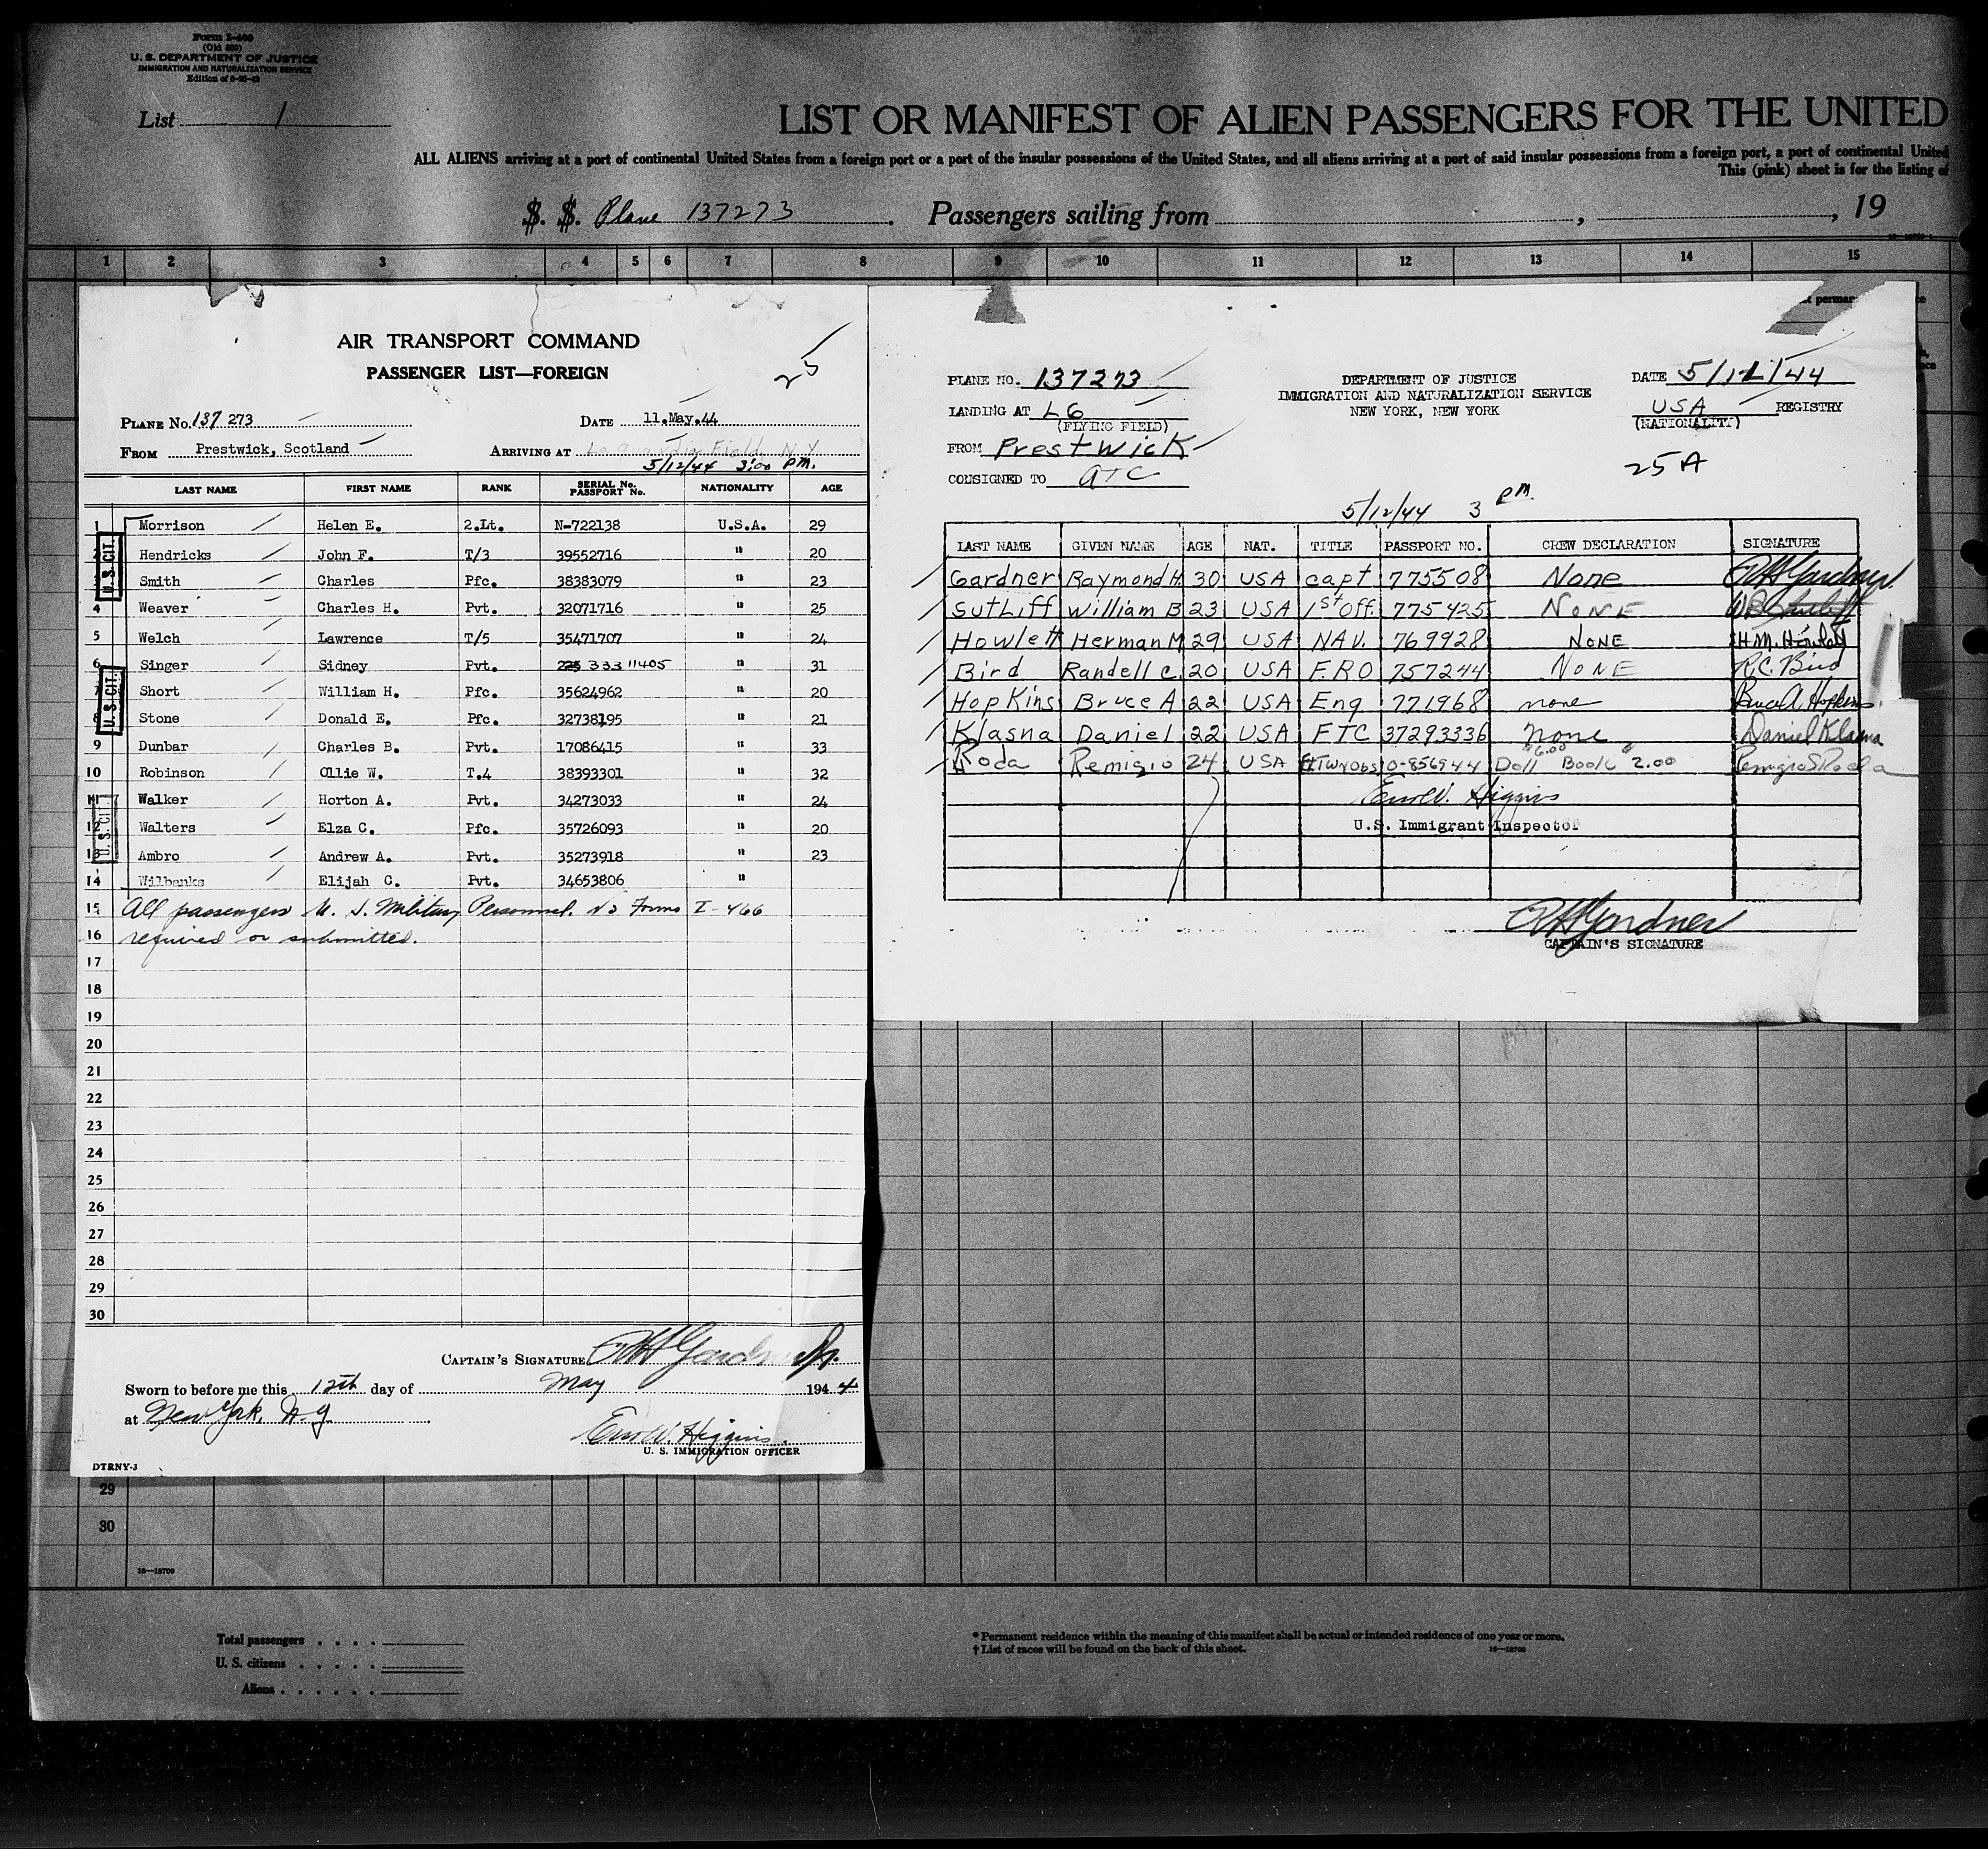 Form I-466
(Old 500)
U. S. DEPARTMENT OF JUSTICE
IMMIGRATION AND NATURALIZATION SERVICE
Edition of
List 1
LIST OR MANIFEST OF ALIEN PASSENGERS FOR THE UNITED
ALL ALIENS arriving at a port of continental United States from a foreign port or a port of the insular possessions of the United States, and all aliens arriving at a port of said insular possessions from a foreign port, a port of continental United
This (pink) sheet is for the listing of
S. S. Plane 137273 . Passengers sailing from , , 19
1 2 3 4 5 6 7 8 9 10 11 12 13 14 15
AIR TRANSPORT COMMAND
PASSENGER LIST—FOREIGN
25
PLANE No. 137 273 DATE 11.May.44
FROM Prestwick, Scotland ARRIVING AT La Guardia Field, N.Y
5/12/44 3:00 PM.
LAST NAME FIRST NAME RANK SERIAL No. PASSPORT No. NATIONALITY AGE
1 Morrison Helen E. 2.Lt. N-722138 U.S.A. 29
2 Hendricks John F. T/3 39552716 " 20
3 Smith Charles Pfc. 38383079 " 23
4 Weaver Charles H. Pvt. 32071716 " 25
5 Welch Lawrence T/5 35471707 " 24
6 Singer Sidney Pvt. 333 11405 " 31
7 Short William H. Pfc. 35624962 " 20
8 Stone Donald E. Pfc. 32738195 " 21
9 Dunbar Charles B. Pvt. 17086415 " 33
10 Robinson Ollie W. T.4 38393301 " 32
11 Walker Horton A. Pvt. 34273033 " 24
12 Walters Elza C. Pfc. 35726093 " 20
13 Ambro Andrew A. Pvt. 35273918 " 23
14 Wilbanks Elijah C. Pvt. 34653806 "
U.S. CIT.
U.S. CIT.
U.S. CIT.
15 All passengers U. S. Military Personnel. No Forms I-466
16 required or submitted.
17
18
19
20
21
22
23
24
25
26
27
28
29
30
CAPTAIN'S SIGNATURE RHGardner Jr.
Sworn to before me this 12th day of May 1944
at New York, N.Y.
W. Higgins
U. S. IMMIGRATION OFFICER
DTRNY-3
PLANE NO. 137273
LANDING AT LG
(FLYING FIELD)
FROM Prestwick
CONSIGNED TO ATC
DEPARTMENT OF JUSTICE
IMMIGRATION AND NATURALIZATION SERVICE
NEW YORK, NEW YORK
DATE 5/12/44
USA REGISTRY
(NATIONALITY)
25A
5/12/44 3 PM.
LAST NAME GIVEN NAME AGE NAT. TITLE PASSPORT NO. CREW DECLARATION SIGNATURE
Gardner Raymond H. 30 USA capt 775508 None RHGardner
Sutliff William B 23 USA 1st Off 775425 NONE WB Sutliff
Howlett Herman M 29 USA NAV. 769928 NONE H.M. Howlett
Bird Randell C. 20 USA F.R.O 757244 NONE R.C. Bird
Hopkins Bruce A 22 USA Eng 771968 none Bruce A. Hopkins
Klasna Daniel 22 USA FTC 37293336 none Daniel Klasna
Roda Remigio 24 USA Obs 0-856944 Doll $6.00 Book 2.00 Remigio S Roda
W. Higgins
U.S. Immigrant Inspector
RHGardner
CAPTAIN'S SIGNATURE
29
30
16—18709
Total passengers
U. S. citizens
Aliens
* Permanent residence within the meaning of this manifest shall be actual or intended residence of one year or more.
† List of races will be found on the back of this sheet.
16—18709